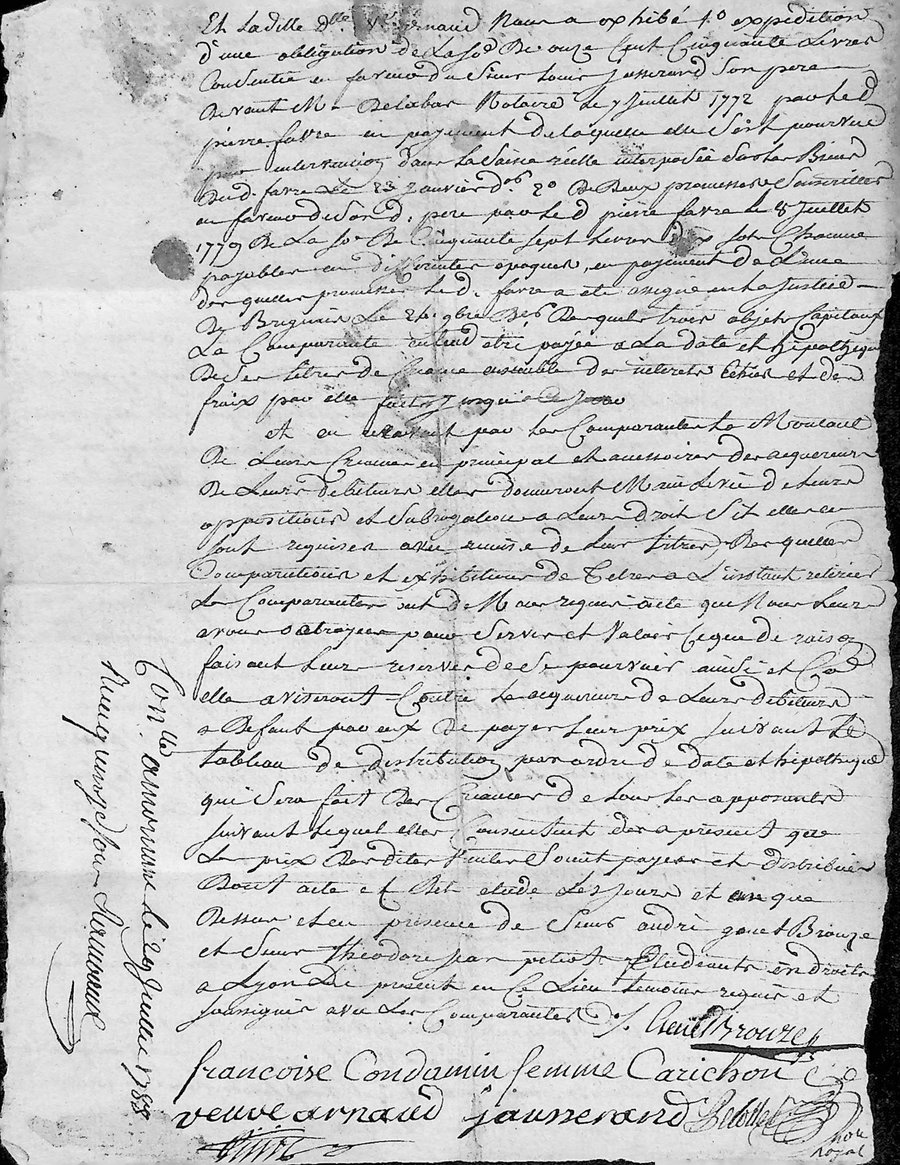 Et Laditte Dlle Ve. arnaud Nous a exhibé 1.o expédition
d'une obligation de La so.e De onze Cent Cinquante Livres
Consentie en faveur du Sieur Louis Jusserand Son pere
Devant Me Delabas Notaire le 7 Juillet 1772 par le d
pierre favre en payement de laquelle elle s'est pourvue
par intervention dans La Saisie réelle interposée Sur les Biens
Dud. favre Le 23 Janvier d. 2.o De Deux promesses Souscrittes
en faveur de Son d. pere par le d pierre favre le 8 Juillet
1779 De La so.e De Cinquante sept Livres dix sols Chacune
payables en differentes epoques, en payement de L'une
des quelles promesses Le d. favre a été assigné en La Justice
De Brignais Le 24 9bre Des quels trois objets Capitaux
La Comparante entend être payée a La date et hipotheque
De Ses titres de Creance ensemble des interets Echus et des
fraix par elle faits Jusqu'a ce Jour
et en recevant par les Comparantes Le Montant
De Leurs Creances en principal et accessoires des acquereurs
De Leurs debiteurs elles donneront Main Levée de Leurs
oppositions et Subrogation a Leurs droits Sit elles en
sont requises avec remise de Leurs titres, Des quelles
Comparutions et exhibitions de Titres a L'instant retirés
Les Comparantes ont de Nous requis acte que Nous Leurs
avons octroyé pour Servir et Valoir Ce que de raison
faisant Leurs reserves de Se pourvoir ainsi et Co.e
elles aviseront Contre Les acquereurs de Leurs debiteurs
a Defaut par eux De payer Leur prix suivant Le
tableau de distribution par ordre de date et hipotheque
qui Sera fait Des Creances de tous Les opposants
suivant Lequel elles Consentent des a present que
Le prix Desdites Ventes Soit payé et distribué
Dont acte fait et Etude Les Jours et an que
Dessus et en presence de Sieur andré gonet Brouze
et Sieur Theodore petiot Etudiants en droits
a Lyon De present en Ce Lieu temoins requis et
soussignés avec Les Comparantes ./. Gonet Brouze
francoise Condamin femme Carichon
veuve arnaud jausserand
No.re royal
Con.lle a mornant le 29 Juillet 1788
Reçu quinze sous